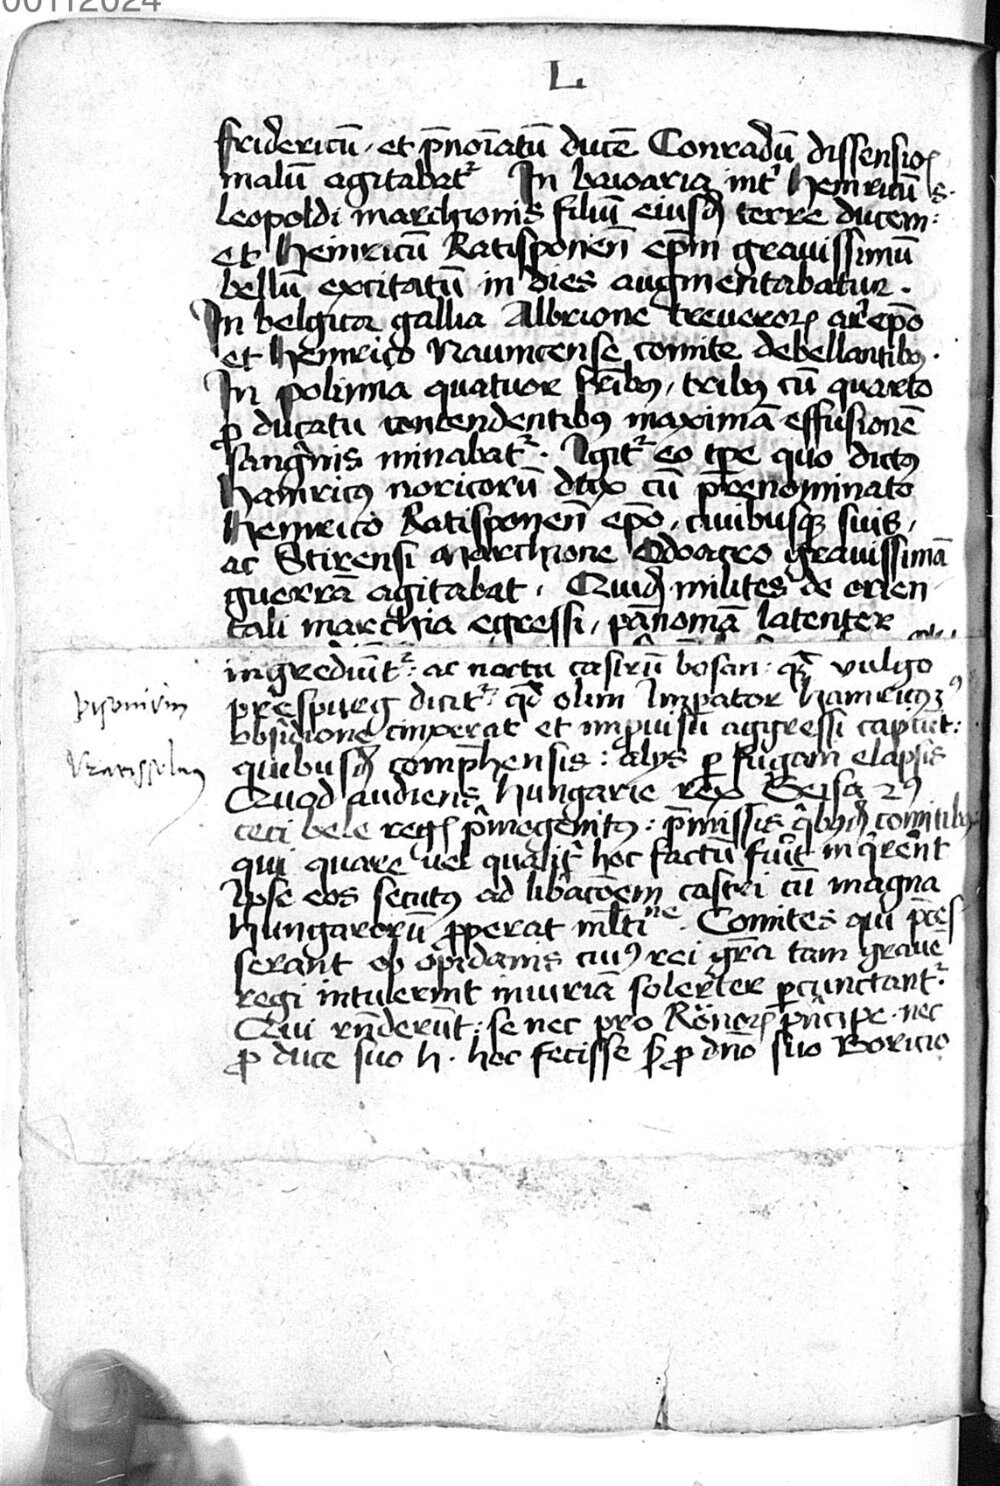 00112024
L
fridericū et p̄noīatū ducē Conradū dissensio
malū agitabatr In bavaria int' Heinricū ls.
leopoldi marchionis filiū eiusdē terre ducem:
et Heinricū Ratisponeñ ep̄m gravissimū
bellū excitatū in dies augmentabatur.
In belgica gallia Albrione treveroꝝ ar̄epō
et Heinrico Naumcense comite debellantibꝰ.
In polinia quatuor fr̄ibꝰ, tribꝰ cū quarto
ꝓ ducatu contendentibꝰ maximā effusionē
sangⁱnis minabatr. Igitr eo tp̄e quo dictꝰ
Hainricꝰ noricorū dux cū prenominato
Heinrico Ratisponeñ ep̄o, civibusqꝫ suis,
ac Stirensi Marchione Odoacro gravissimā
guerrā agitabat. Quidā milites de orien
tali marchia egressi, pānoniā latenter
ingrediūtr: ac noctu castrū bosan: qd̄ vulgo
prespurg dicitr: qd̄ olim Imperator Hainricꝰ
obsidione cinxerat et imꝓvisū aggressi capiūt:
quibusdā comp̄hensis: alys ꝑ fugam elapsis
Quod audiens Hungarie rex Geisa
ceci bele regꝭ pⁱmogenitꝰ: p̄missis qⁱbꝰdā comitibꝰ
qui quare vel qualitⁱ hoc factū fuⁱt inqⁱrer̄nt
Ipse eos secutꝰ ad lib̄acōem castri cū magna
Hungarorū ꝓperat ml̄tine. Comites qui p̄ces
serant eo opidanis cuiꝰ rei gr̄a tam gravē
regi intulerint iniuriā solerter ꝑcunctantr.
Qui rn̄derūt: se nec pro Romōꝝ pⁱncipe nec
ꝓ duce suo H. hoc fecisse sꝫ ꝓ dn̄o suo Boricio